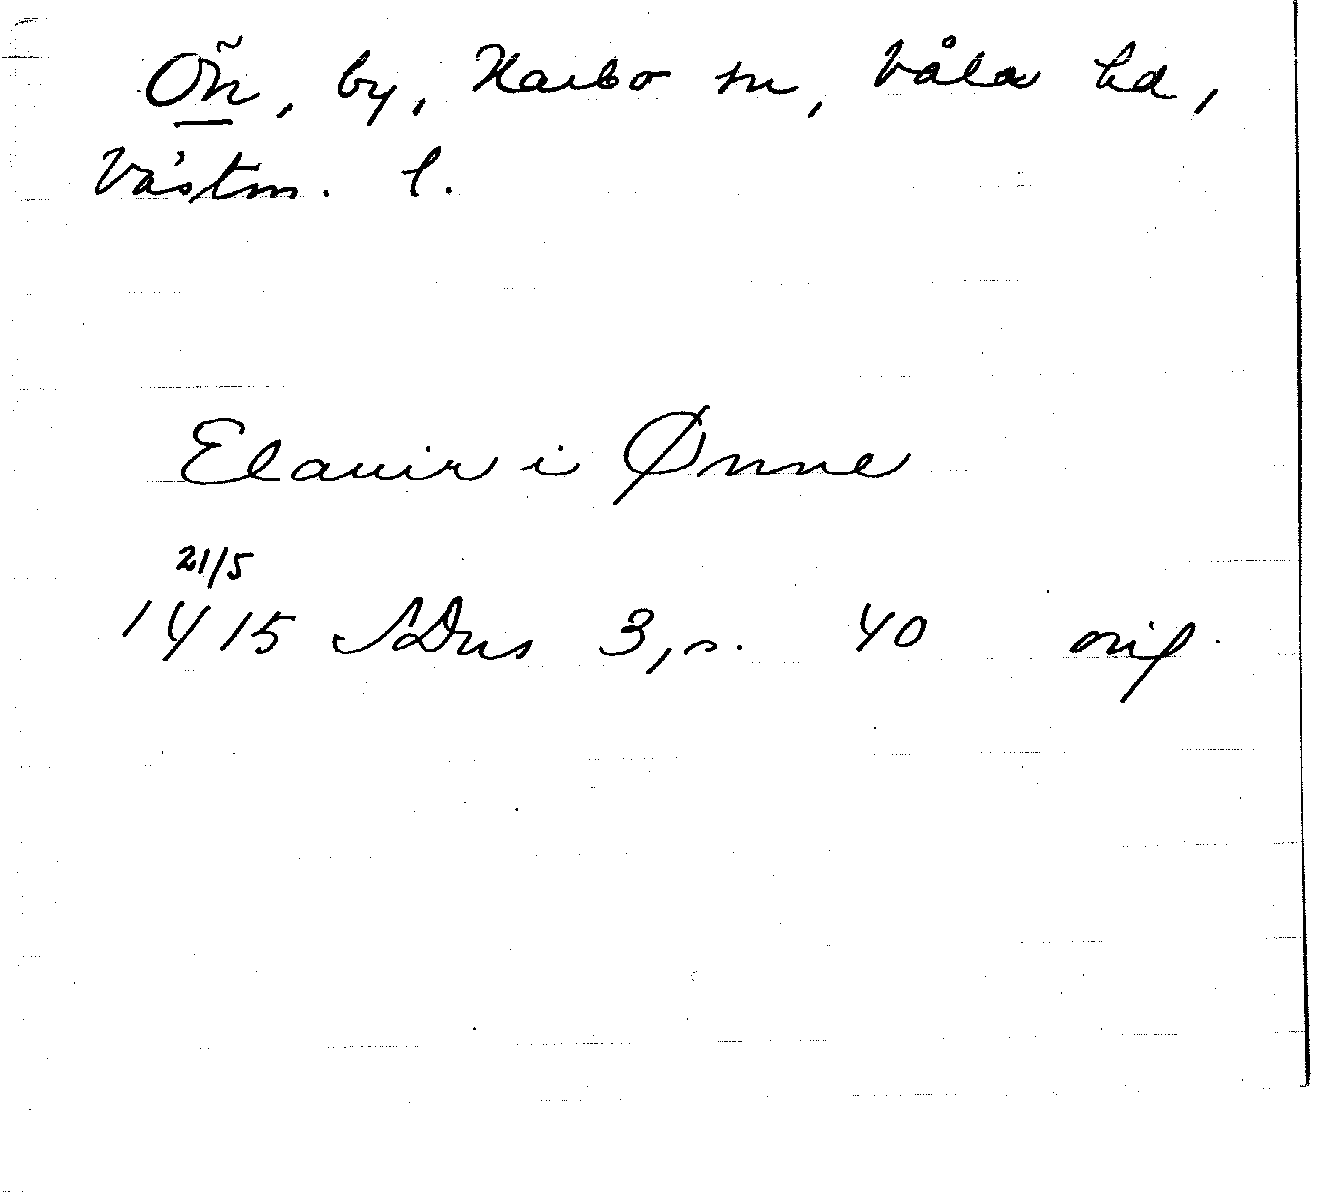 Ön, by, Harbo sn, Våla hd,
Västm. l.
Elauir i Ønne
21/5
1415 SDns 3, s. 40 orig.